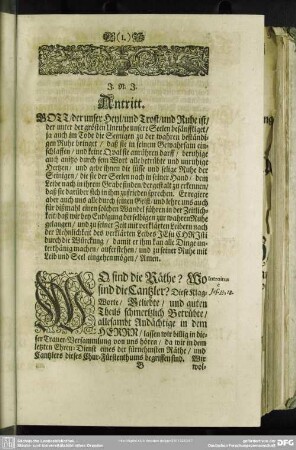 (1.)
J. N. J.
Antritt.
GOTT / der unser Heyl / und Trost / und Ruhe ist /
der unter der grösten Unruhe unsere Seelen besänfftiget /
ja auch im Tode die Seinigen zu der wahren beständi-
gen Ruhe bringet / daß sie in seinem Gewahrsam ein-
schlaffen / und keine Qual sie anrühren darff / beruhige
auch anitzo durch sein Wort alle betrübte und unruhige
Hertzen / und gebe ihnen die süsse und selige Ruhe der
Seinigen / die sie der Seelen nach in seiner Hand / dem
Leibe nach in ihrem Grabe finden dergestalt zu erkennen /
daß sie darüber sich in ihm zufrieden sprechen. Er regiere
aber auch uns alle durch seinen Geist / und lehre uns auch
für dißmahl einen solchen Wandel führen in der Zeitlich-
keit / daß wir bey Endigung derselbigen zur wahren Ruhe
gelangen / und zu seiner Zeit mit verklärten Leibern nach
der Aehnlichkeit des verklärten Leibes JEsu CHRisti
durch die Würckung / damit er ihm kan alle Dinge un-
terthänig machen / aufferstehen / und zu seiner Ruhe mit
Leib und Seel eingehen mögen / Amen.
WO sind die Räthe? Wo
sind die Cantzler? Diese Klag-
Worte / Geliebte / und guten
Theils schmertzlich Betrübte /
allesamt Andächtige in dem
HERRN / lassen wir billig in die-
ser Trauer-Versammlung von uns hören / da wir in dem
letzten Ehren-Dienst eines der fürnehmsten Räthe / und
Cantzlers dieses Chur-Fürstenthums begriffen sind. Wir
B
wol-